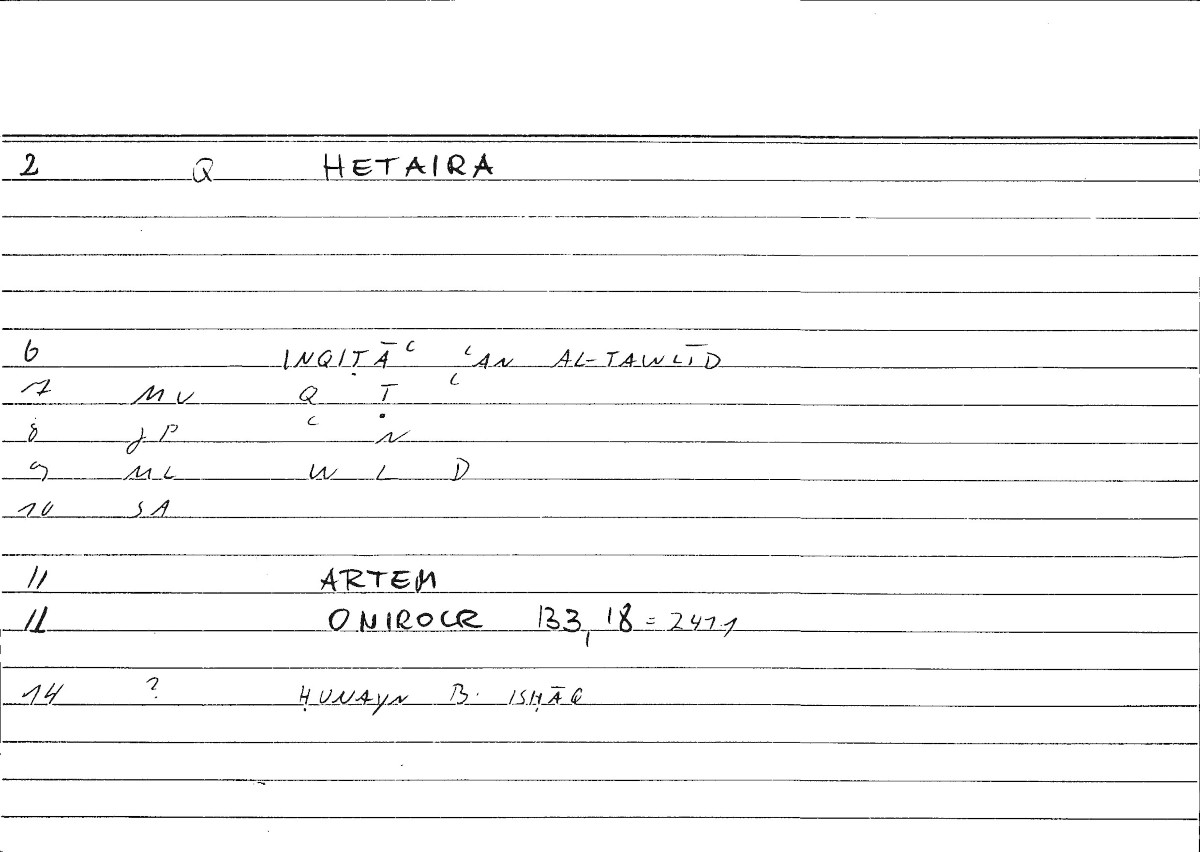 2 Q HETAIRA
6 INQIṬĀʿ ʿAN AL-TAWLĪD
7 MV Q Ṭ ʿ
8 JP ʿ N
9 ML W L D
10 SA
11 ARTEM
12 ONIROCR 133,18 = 241,1
14 ? ḤUNAYN B. ISḤĀQ